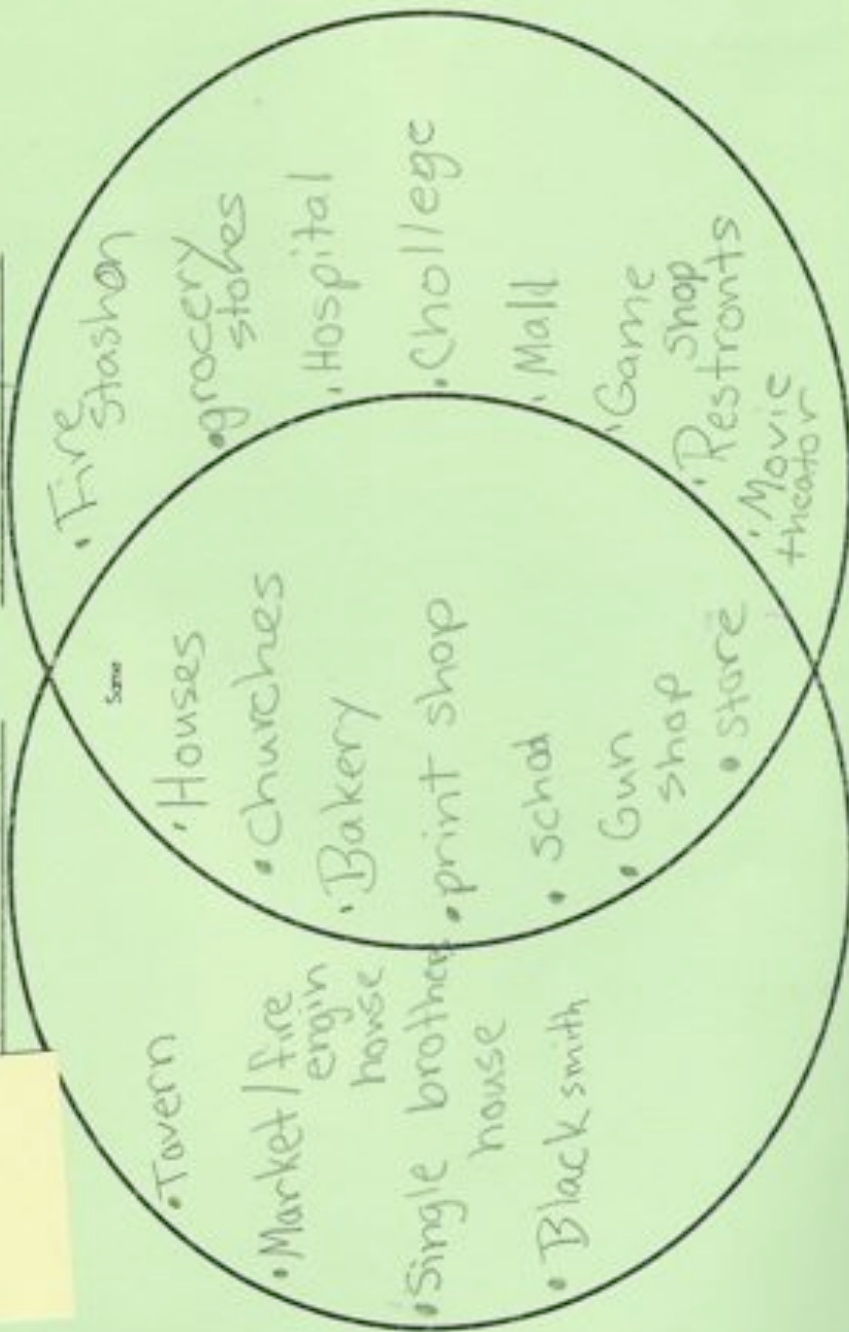 Same
• Tavern
• Market/fire
engin
house
• Single brothers
house
• Black smith
• Houses
• Churches
• Bakery
• print shop
• school
• Gun
shop
• store
• Fire
Stashon
• grocery
stores
• Hospital
• Chollege
• Mall
• Game
shop
• Restronts
• Movie
theator